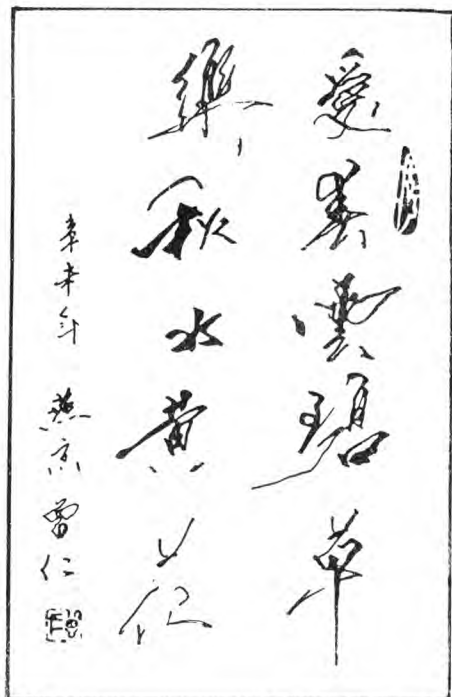 愛春雲碧草
樂秋水黄花
辛未年 燕京曾仁